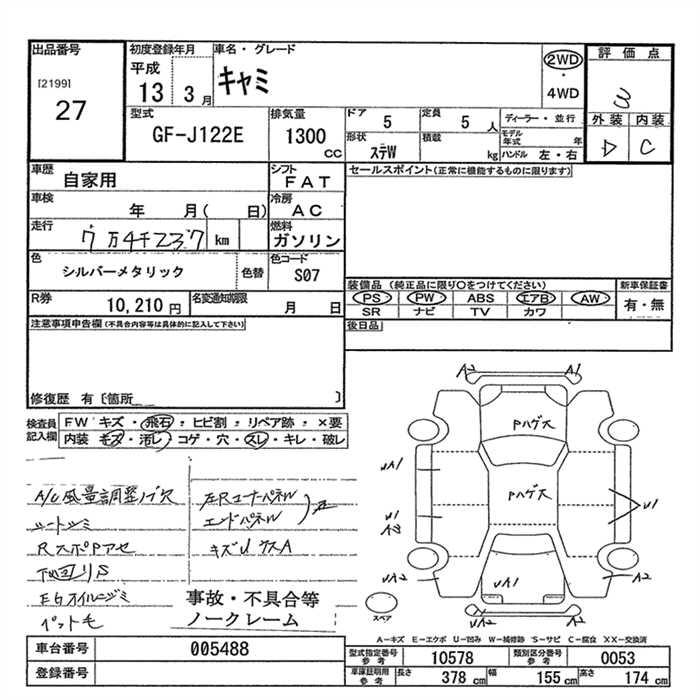 出品番号
[2199]
27
初度登録年月
平成
13 3月
車名・グレード
キャミ
2WD
・
4WD
評価点
3
外装 内装
D C
型式
GF-J122E
排気量
1300
CC
ドア
5
定員
5 人
形状
ステW
積載
kg
ディーラー・並行
モデル年式 年
ハンドル 左・右
車歴
自家用
シフト
FAT
車検
年 月( 日)
冷房
AC
走行
万4千237 km
燃料
ガソリン
色
シルバーメタリック
色替
色コード
S07
R券
10,210 円
名変通知期限
月 日
セールスポイント(正常に機能するものに限ります)
装備品 (純正品に限り○をつけてください)
PS PW ABS エアB AW
SR ナビ TV カワ
新車保証書
有・無
後日品
注意事項申告欄(不具合内容等は具体的に記入して下さい)
修復歴 有〔箇所 〕
検査員記入欄
FW キズ・飛石・ヒビ割・リペア跡・×要
内装 キズ・汚レ・コゲ・穴・スレ・キレ・破レ
A/C風量調整ツブ欠
シートシミ
RスポPアセ
下回りS
EGオイルニジミ
ペット毛
左Rコーナーパネル
エンドパネル
キズU ウスA
事故・不具合等
ノークレーム
A1 A1
Pハゲ大
Pハゲ大
UA1
U1
A3
UA2
UA1
U1
A2
A2
スペア
A-キズ E-エクボ U-凹み W-補修跡 S-サビ C-腐食 XX-交換済
車台番号
005488
登録番号
型式指定番号
参考
10578
類別区分番号
参考
0053
車庫証明用
参考
長さ
378 cm
幅
155 cm
高さ
174 cm